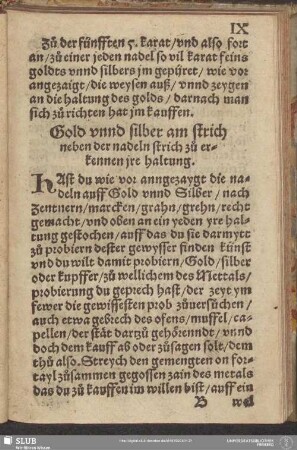 IX
Zů der fünfften 5. karat/vnd also fort
an/zů einer jeden nadel so vil karat feins
goldts vnnd silbers jm gepüret/wie vor
angezaigt/die weysen auß/vnnd zeygen
an die haltung des golds/darnach man
sich zů richten hat jm kauffen.
Gold vnnd silber am strich
neben der nadeln strich zů er-
kennen jre haltung.
HAst du wie vor anngezaygt die na-
deln auff Gold vnnd Silber/nach
Zentnern/marcken/grahn/grehn/recht
gemacht/vnd oben an ein yeden yre hal-
tung gestochen/auff das du sie darmytt
zů probiern dester gewysser finden künst
vnd du wilt damit probiern/Gold/silber
oder kupffer/zů wellichem des Mettals/
probierung du geprech hast/der zeyt ym
fewer die gewissesten prob zůuersůchen/
auch etwa gebrech des ofens/muffel/ca-
pellen/der stät dartzů gehörenndt/vnnd
doch dem kauff ab oder zůsagen solt/dem
thů also. Streych den gemengten on for-
tayl zůsammen gegossen zain des metals
das du zů kauffen im willen bist/auff ein
B
SLUB
Wir führen Wissen.